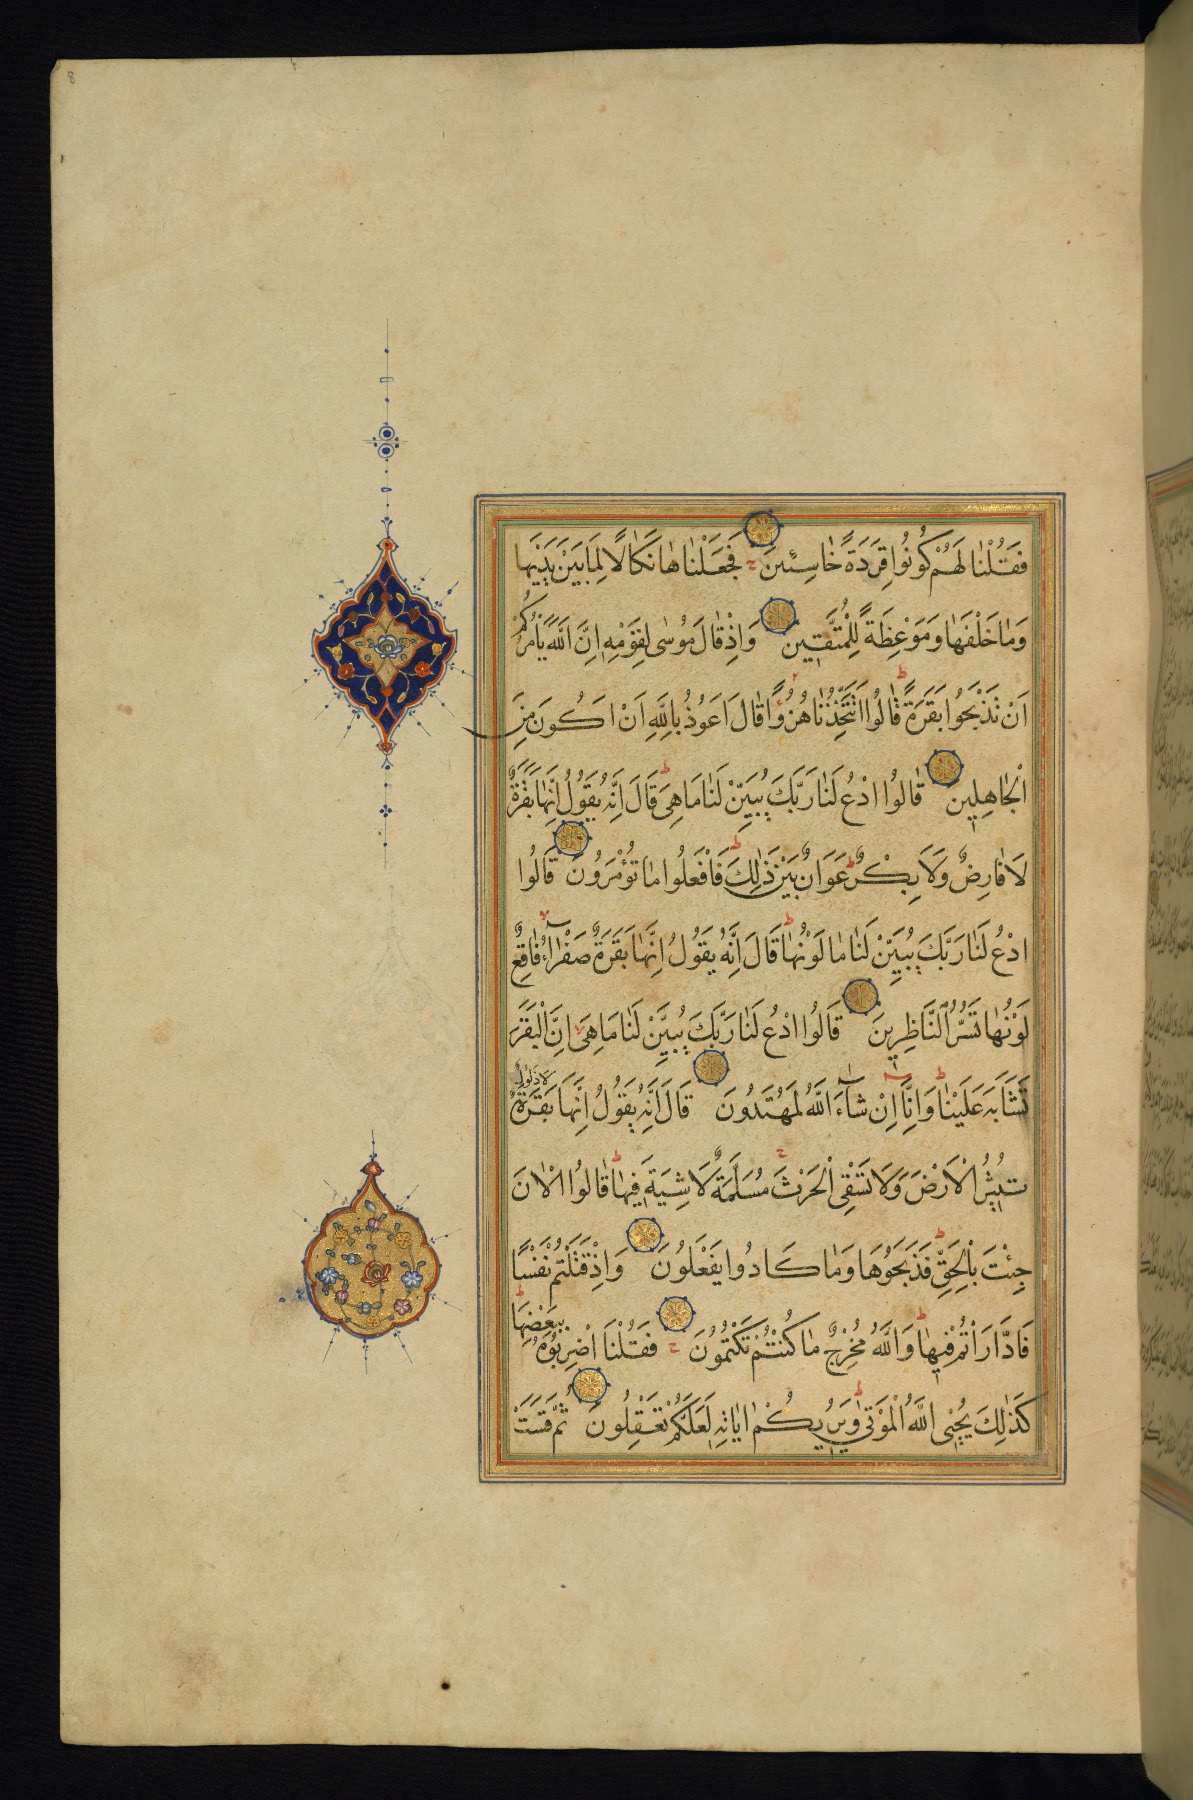 8
فَقُلْنَا لَهُمْ كُونُوا قِرَدَةً خَاسِئِينَ ج فَجَعَلْنَاهَا نَكَالًا لِمَا بَيْنَ يَدَيْهَا
وَمَا خَلْفَهَا وَمَوْعِظَةً لِلْمُتَّقِينَ وَاِذْ قَالَ مُوسَى لِقَوْمِهِ اِنَّ اللَّهَ يَأْمُرُكُمْ
اَنْ تَذْبَحُوا بَقَرَةً ط قَالُوا اَتَتَّخِذُنَا هُزُؤًا قَالَ اَعُوذُ بِاللَّهِ اَنْ اَكُونَ مِنَ
الْجَاهِلِينَ قَالُوا ادْعُ لَنَا رَبَّكَ يُبَيِّنْ لَنَا مَا هِيَ ط قَالَ اِنَّهُ يَقُولُ اِنَّهَا بَقَرَةٌ
لَا فَارِضٌ وَلَا بِكْرٌ ط عَوَانٌ بَيْنَ ذَلِكَ ط فَافْعَلُوا مَا تُؤْمَرُونَ قَالُوا
ادْعُ لَنَا رَبَّكَ يُبَيِّنْ لَنَا مَا لَوْنُهَا ط قَالَ اِنَّهُ يَقُولُ اِنَّهَا بَقَرَةٌ صَفْرَاءُ لا فَاقِعٌ
لَوْنُهَا تَسُرُّ النَّاظِرِينَ قَالُوا ادْعُ لَنَا رَبَّكَ يُبَيِّنْ لَنَا مَا هِيَ لا اِنَّ الْبَقَرَ
تَشَابَهَ عَلَيْنَا ط وَاِنَّا اِنْ شَاءَ اللَّهُ لَمُهْتَدُونَ قَالَ اِنَّهُ يَقُولُ اِنَّهَا بَقَرَةٌ لَا ذَلُولٌ
تُثِيرُ الْاَرْضَ وَلَا تَسْقِي الْحَرْثَ ج مُسَلَّمَةٌ لَا شِيَةَ فِيهَا ط قَالُوا الْاٰنَ
جِئْتَ بِالْحَقِّ ط فَذَبَحُوهَا وَمَا كَادُوا يَفْعَلُونَ وَاِذْ قَتَلْتُمْ نَفْسًا
فَادَّارَاْتُمْ فِيهَا ط وَاللَّهُ مُخْرِجٌ مَا كُنْتُمْ تَكْتُمُونَ ج فَقُلْنَا اضْرِبُوهُ بِبَعْضِهَا ط
كَذَلِكَ يُحْيِي اللَّهُ الْمَوْتَى ط وَيُرِيكُمْ اٰيَاتِهِ لَعَلَّكُمْ تَعْقِلُونَ ثُمَّ قَسَتْ